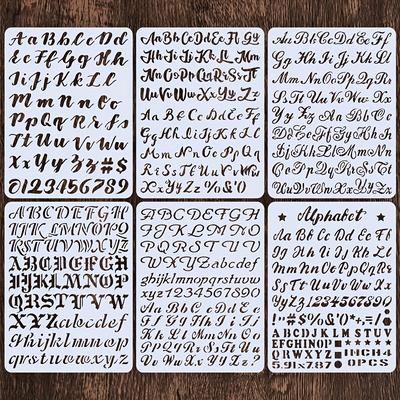 Aa Bb Cc Dd
Ee Ff Gg Hh
Ii Jj Kk LL
Mm Nn Oo
Pp Qq Rr Ss
Tt Uu Vv Ww
Xx Yy Zz #$
0123456789
Aa Bb Cc Dd Ee Ff Gg
Hh Ii Jj Kk Ll Mm
Nn Oo Pp Qq Rr Ss Tt
Uu Vv Ww Xx Yy Zz
Aa Bb Cc Dd Ee Ff
Gg Hh Ii Jj Kk Ll
Mm Nn Oo Pp Qq
Rr Ss Tt Uu Vv Ww
Xx Yy Zz %&'0
Aa Bb Cc Dd Ee Ff
Gg Hh Ii Jj Kk Ll
Mm Nn Oo Pp Qq Rr
Ss Tt Uu Vv Ww Xx
Yy Zz Aa Bb Cc
Dd Ee Ff Gg Hh Ii
Jj Kk Ll Mm Nn
Oo Pp Qq Rr Ss Tt
Uu Vv Ww Xx Yy Zz
ABCDEFGH
IJKLMNOPQ
RSTUVWXYZ
ABCDEFGH
IJKLMNOP
QRSTUVW
XYZabcdef
ghijklmnop
qrstuvwxyz
ABCDEFGH
IJKLMNO
PQRSTUV
WXYZabcdef
ghijklmnopqrstuvw
xyz1234567890
Aa Bb Cc Dd Ee
Ff Gg Hh Ii Jj
Kk Ll Mm Nn Oo
Pp Qq Rr Ss Tt Uu
Vv Ww Xx Yy Zz
★ Alphabet ★
Aa Bb Cc Dd Ee Ff
Gg Hh Ii Jj Kk Ll
Mm Nn Oo Pp Qq Rr
Ss Tt Uu Vv Ww Xx
Yy Zz 1234567890
ABCDJKLMSTUV
EFGHINOP
QRWXYZ INCH4
5.91x7.87 0PCS